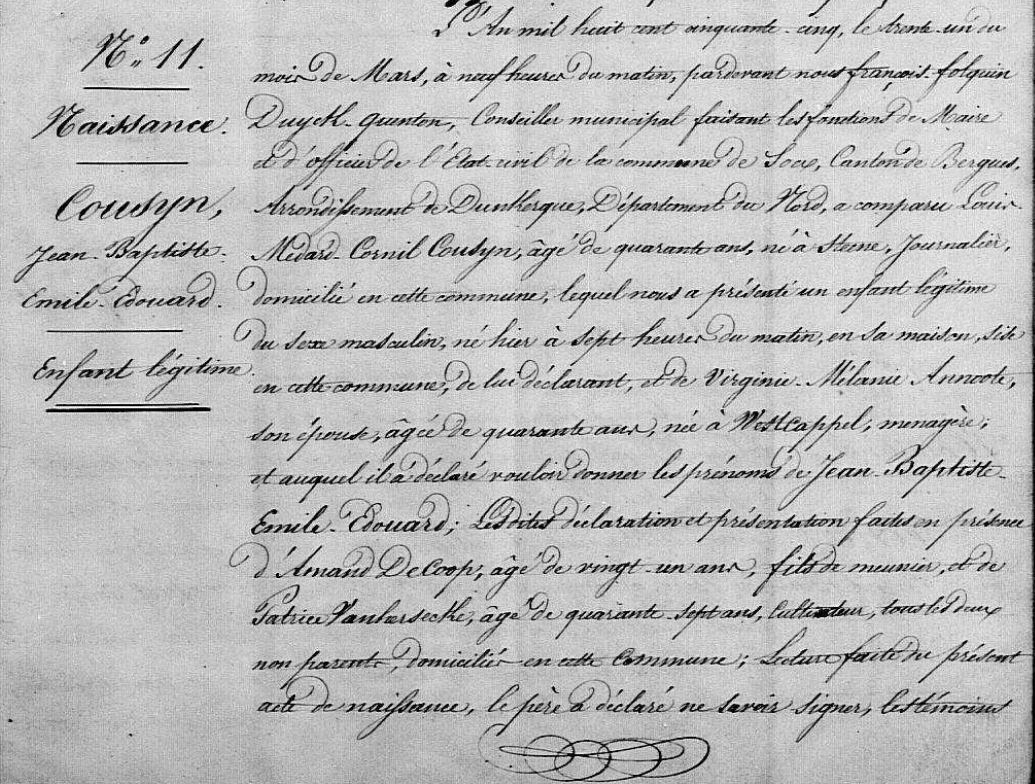 N.° 11.
Naissance.
Cousyn,
Jean-Baptiste-
Emile-Edouard.
Enfant légitime
L'An mil huit cent cinquante-cinq, le trente-un du
mois de Mars, à neuf heures du matin, pardevant nous françois-folquin
Duyck-Quenton, Conseiller municipal faisant les fonctions de Maire
et d'officier de l'Etat civil de la commune de Socx, Canton de Bergues,
Arrondissement de Dunkerque, Département du Nord, a comparu Louis-
Médard-Cornil Cousyn, âgé de quarante ans, né à Steene, Journalier,
domicilié en cette commune, lequel nous a présenté un enfant légitime
du sexe masculin, né hier à sept heures du matin, en sa maison, sise
en cette commune, de lui déclarant, et de Virginie-Mélanie Annoote,
son épouse, âgée de quarante ans, née à Westcappel, menagère;
et auquel il a déclaré vouloir donner les prénoms de Jean-Baptiste-
Emile-Edouard; Lesdites déclaration et présentation faites en présence
d'Amand DeCoop, âgé de vingt-un ans, fils de meunier, et de
Patrice Vanhaersecke, âgé de quarante-sept ans, Cultivateur, tous les deux
non parents, domiciliés en cette Commune; Lecture faite du présent
acte de naissance, le père a déclaré ne savoir signer, les témoins